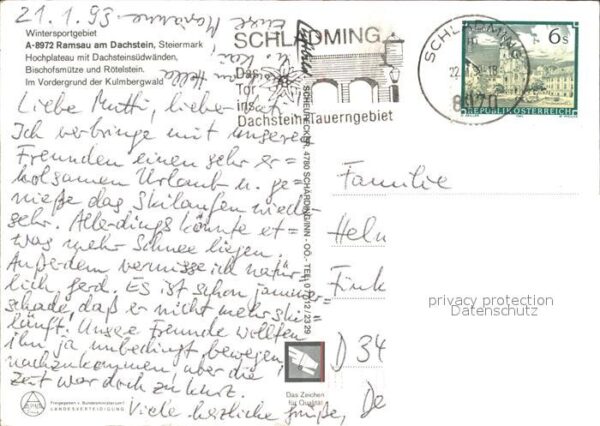 21.1.93
Wintersportgebiet
A-8972 Ramsau am Dachstein, Steiermark
Hochplateau mit Dachsteinsüdwänden,
Bischofsmütze und Rötelstein.
Im Vordergrund der Kulmbergwald
Liebe Mutti, lieber
Ich verbringe mit unseren
Freunden einen sehr er=
holsamen Urlaub u. ge=
nieße das Skilaufen wieder
sehr. Allerdings könnte et=
was mehr Schnee liegen.
Außerdem vermisse ich natür=
lich, gerd. Es ist schon jammer=
schade, daß er nicht mehr ski
läuft. Unsere Freunde wollten
ihn ja unbedingt bewegen
nachzukommen, aber die
Zeit war doch zu kurz.
Viele herzliche Grüße,
eure Marianne
SCHLADMING
Das
Tor
ins
Dachstein-Tauerngebiet
SCHLADMING
8970
6 S
REPUBLIK ÖSTERREICH
4780 SCHÄRDING/INN - OÖ.
Familie
Heln
Fink
D 34
De
privacy protection
Datenschutz
Das Zeichen
für Qualität
Freigegeben v. Bundesministerium f.
LANDESVERTEIDIGUNG